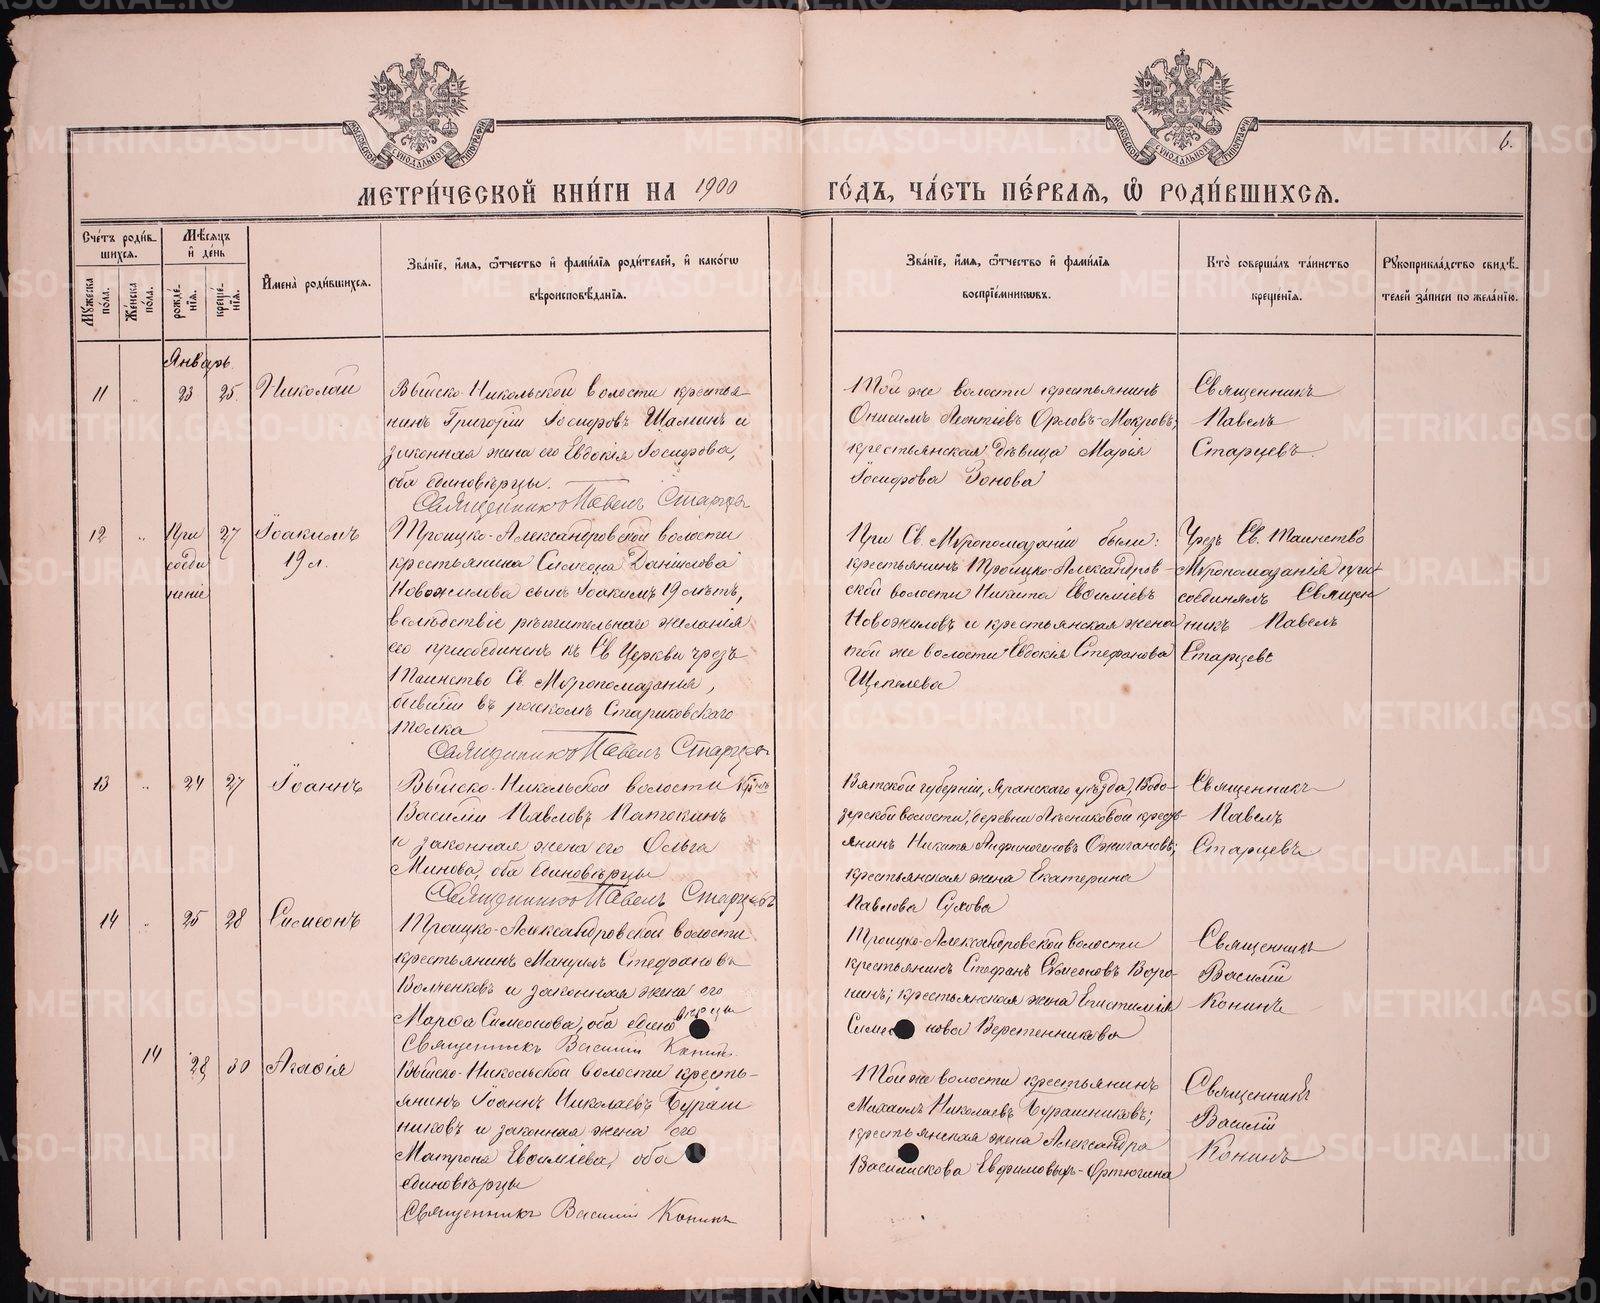 МОСКОВСКОЙ СѴНОДАЛЬНОЙ ТИПОГРАФІИ
МОСКОВСКОЙ СѴНОДАЛЬНОЙ ТИПОГРАФІИ
6.
МЕТРИ́ЧЕСКОЙ КНИ́ГИ НА 1900 ГО́ДЪ, ЧА́СТЬ ПЕ́РВАЯ, Ѽ РОДИ́ВШИХСЯ.
Сче́тъ роди́в-
шихся.
Мѣ́сяцъ
и҆ де́нь
Му́жеска
по́ла.
Же́нска
по́ла.
рожде́-
нїя.
креще́-
нїя.
И҆мена̀ роди́вшихся.
Зва́нїе, и҆́мя, ѻ҆́тчество и҆ фами́лїя роди́телей, и҆ како́гѡ
вѣроисповѣ́данїя.
Зва́нїе, и҆́мя, ѻ҆́тчество и҆ фами́лїя
воспрїе́мниковъ.
Кто̀ соверша́лъ та́инство
креще́нїя.
Рꙋкоприкла́дство свидѣ́-
телей за́писи по жела́нїю.
Январь
11 „ 23 25 Николай
Выйско-Никольской волости крестья-
нинъ Григорій Іосифовъ Шаминъ и
законная жена его Евдокія Іосифова,
оба единовѣрцы.
Священникъ Павелъ Старцевъ
Той же волости крестьянинъ
Онисимъ Леонтіевъ Орловъ-Мокровъ;
крестьянская дѣвица Марія
Іосифова Зонова
Священникъ
Павелъ
Старцевъ.
12 „ При 27 Іоакимъ
соеди 19 л.
неніе
Троицко-Александровской волости
крестьянина Симеона Даніилова
Новожилова сынъ Іоакимъ 19 лѣтъ,
вслѣдствіе рѣшительнаго желанія
его присоединенъ къ Св Церкви чрезъ
Таинство Св. Мѵропомазанія,
бывшій въ расколѣ Стариковскаго
толка
Священникъ Павелъ Старцевъ
При Св. Мѵропомазаніи были:
крестьянинъ Троицко-Александров-
ской волости Никита Евѳиміевъ
Новожиловъ и крестьянская жена
той же волости Евдокія Стефанова
Щепелева
Чрезъ Св. Таинство
Мѵропомазанія при-
соединялъ Священ
никъ Павелъ
Старцевъ
13 „ 24 27 Іоаннъ
Выйско-Никольской волости кр-нъ
Василій Павловъ Патокинъ
и законная жена его Ольга
Минова, оба единовѣрцы
Священникъ Павелъ Старцевъ
Вятской губерніи, Яранскаго уѣзда, Водо-
зерской волости, деревни Лѣсниковой кресть-
янинъ Никита Анфиногеновъ Ожигановъ;
крестьянская жена Екатерина
Павлова Сухова
Священникъ
Павелъ
Старцевъ
14 „ 25 28 Симеонъ
Троицко-Александровской волости
крестьянинъ Мануилъ Стефановъ
Волченковъ и законная жена его
Марѳа Симеонова, оба единовѣрцы
Священникъ Василій Конинъ.
Троицко-Александровской волости
крестьянинъ Стефанъ Сѵмеоновъ Воро-
нинъ; крестьянская жена Епистимія
Симеонова Верстенникова
Священникъ
Василій
Конинъ
14 28 30 Агаѳія
Выйско-Никольской волости кресть-
янинъ Іоаннъ Николаевъ Бураш
никовъ и законная жена его
Матрона Евѳиміева, оба
единовѣрцы
Священникъ Василій Конинъ
Той же волости крестьянинъ
Михаилъ Николаевъ Бурашниковъ;
крестьянская жена Александра
Василискова Ефимовыхъ-Артюгина
Священникъ
Василій
Конинъ
METRIKI.GASO-URAL.RU